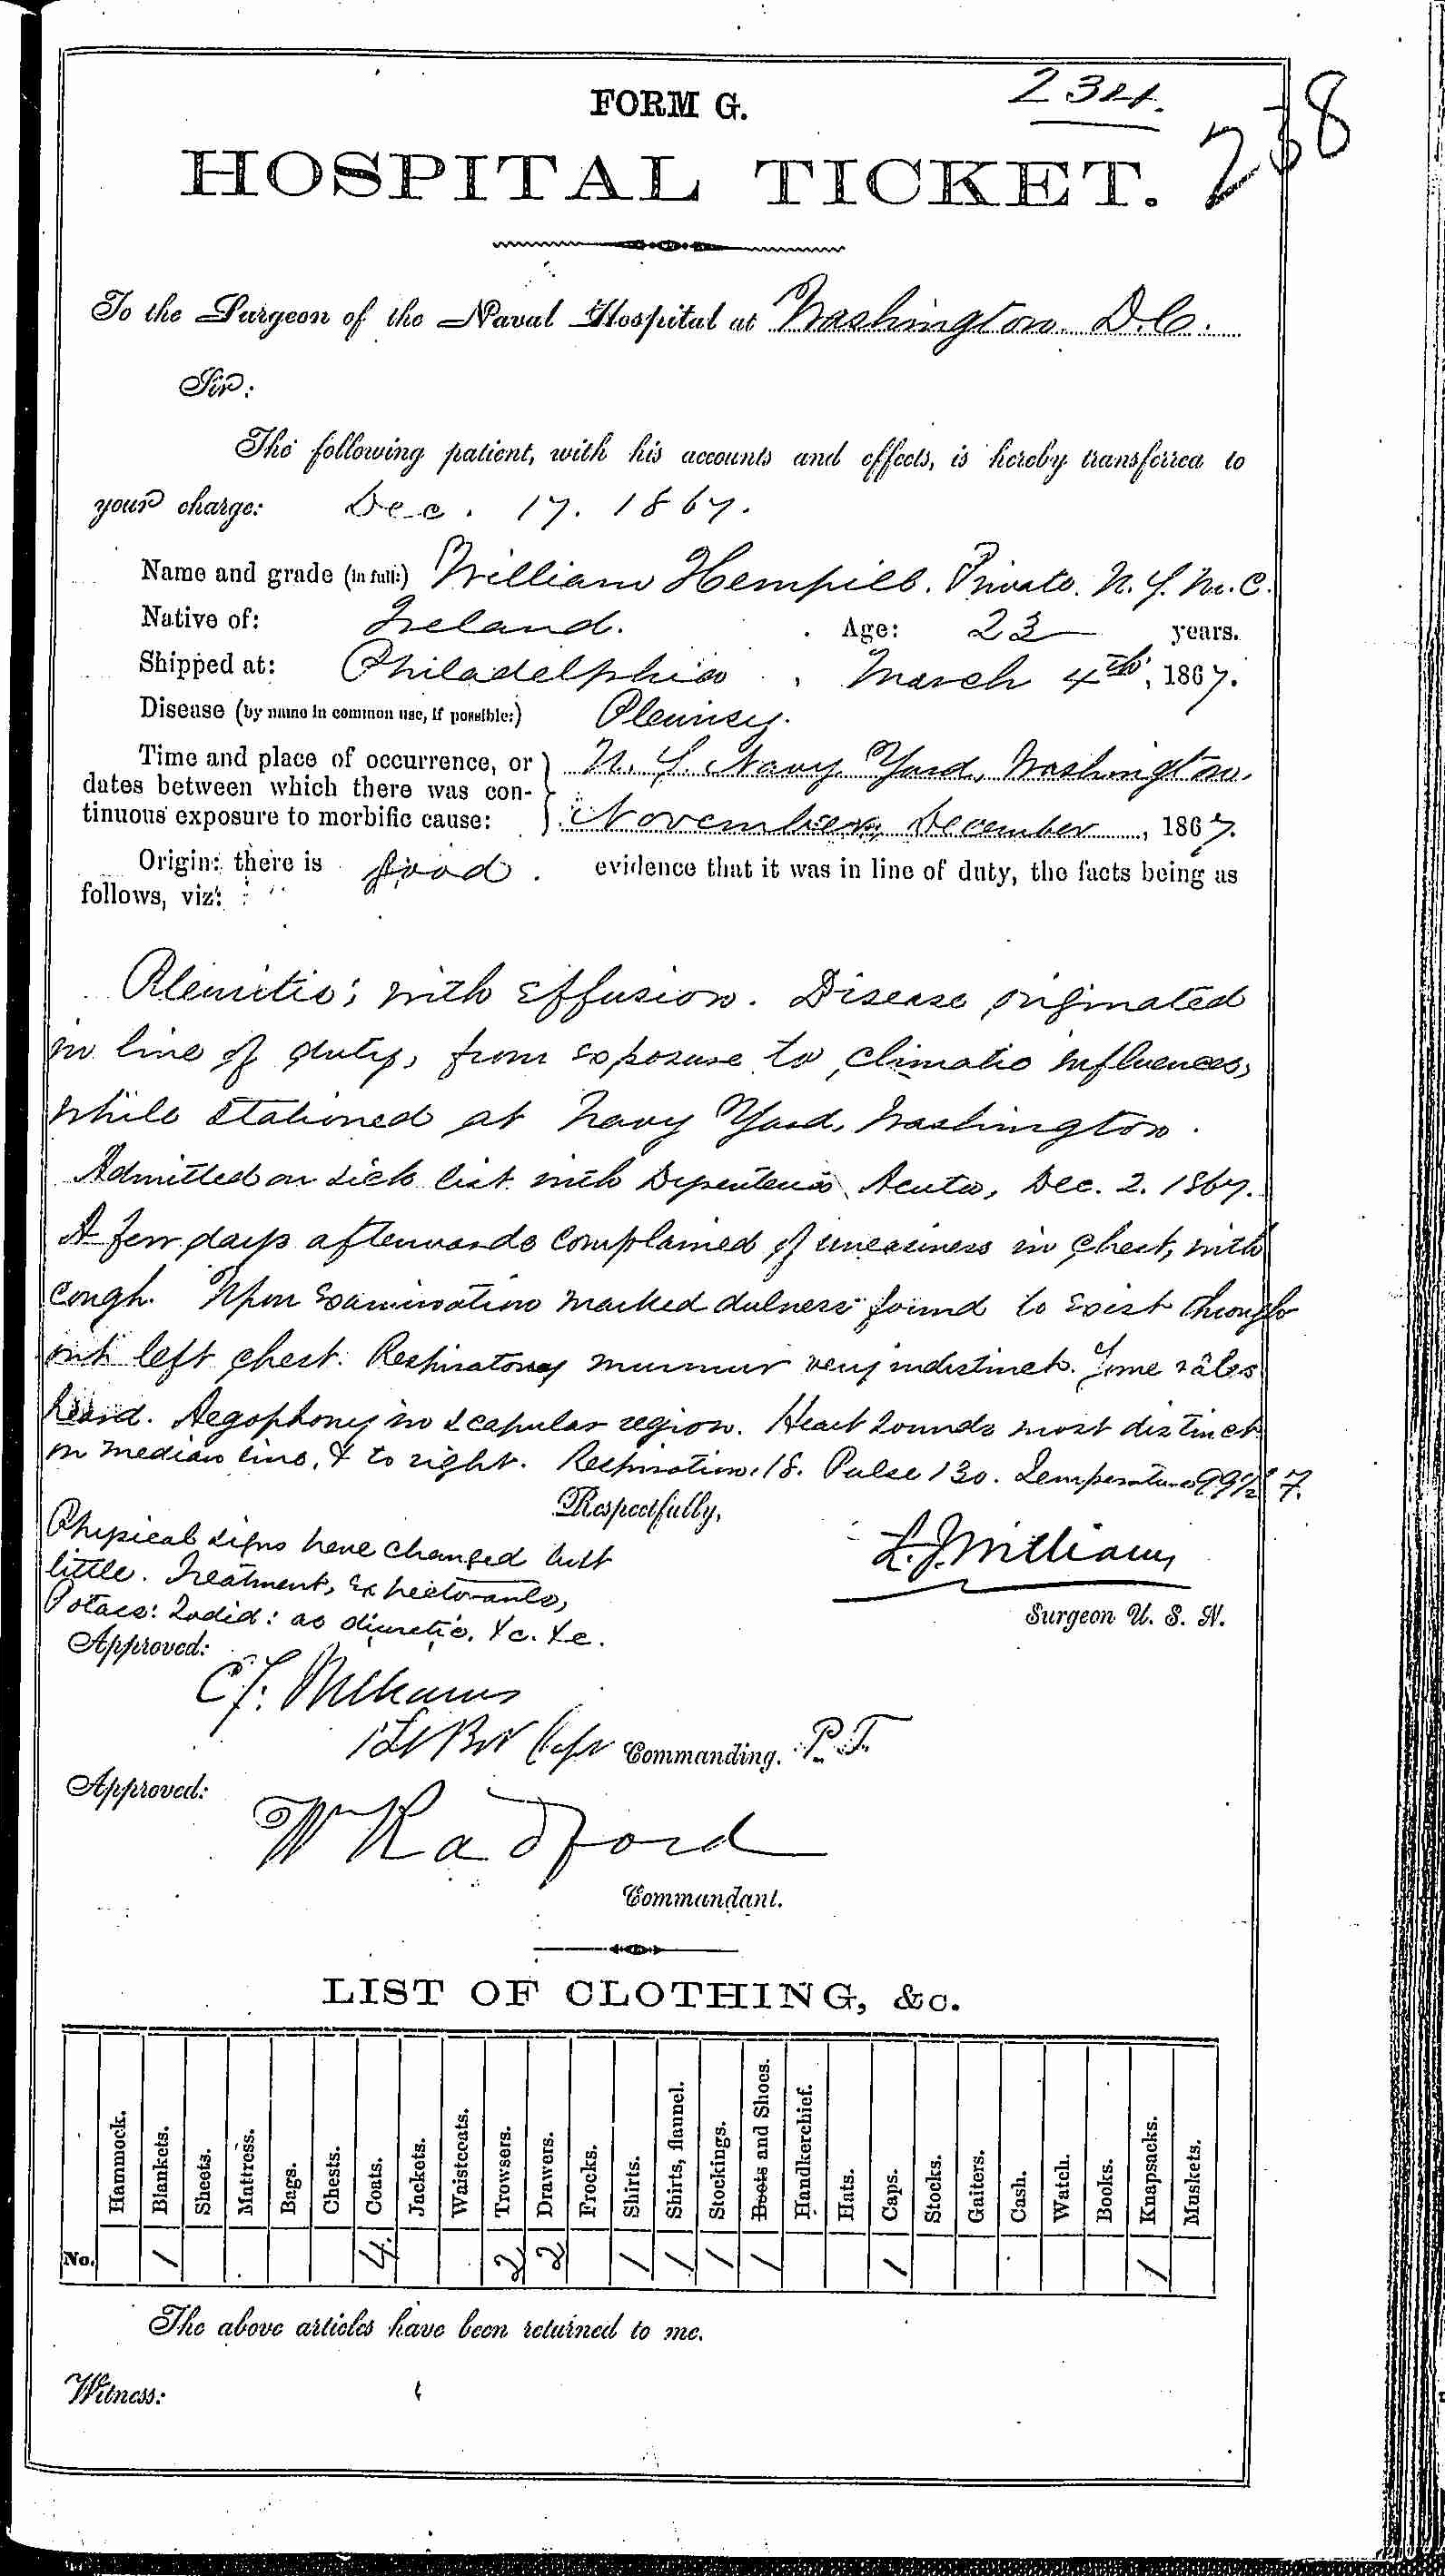 FORM G.
234.
238
HOSPITAL TICKET.
To the Surgeon of the Naval Hospital at Washington. D.C.
Sir:
The following patient, with his accounts and effects, is hereby transferred to
your charge: Dec. 17. 1867.
Name and grade (in full:) William Hempill. Private. U.S.M.C.
Native of: Ireland. Age: 23 years.
Shipped at: Philadelphia, March 4th, 1867.
Disease (by name in common use, if possible:) Pleurisy.
Time and place of occurrence, or U.S. Navy Yard, Washington,
dates between which there was con-
tinuous exposure to morbific cause: November, December, 1867.
Origin: there is good. evidence that it was in line of duty, the facts being as
follows, viz:
Pleuritis; with Effusion. Disease originated
in line of duty, from exposure to climatic influences,
while stationed at Navy Yard, Washington.
Admitted on sick list with Dysenteria Acuta, Dec. 2. 1867.
A few days afterwards complained of uneasiness in chest, with
cough. Upon Examination marked dulness found to exist through
out left chest. Respiratory murmur very indistinct. Some râles
heard. Aegophony in scapular region. Heart sounds most distinct
on median line, & to right. Respiration, 18. Pulse 130. Temperature 99½° F.
Respectfully,
Physical signs have changed but
little. Treatment, Expectorants,
Potass: Iodid: as diuretic, &c. &c.
L.J. Williams
Surgeon U. S. N.
Approved:
C.F. Williams
1st Lt Bvt Capt Commanding. P.T.
Approved:
W Radford
Commandant.
LIST OF CLOTHING, &c.
Hammock. Blankets. Sheets. Mattress. Bags. Chests. Coats. Jackets. Waistcoats. Trowsers. Drawers. Frocks. Shirts. Shirts, flannel. Stockings. Boots and Shoes. Handkerchief. Hats. Caps. Stocks. Gaiters. Cash. Watch. Books. Knapsacks. Muskets.
No. 1 4. 2 2 1 1 1 1 1 1
The above articles have been returned to me.
Witness: